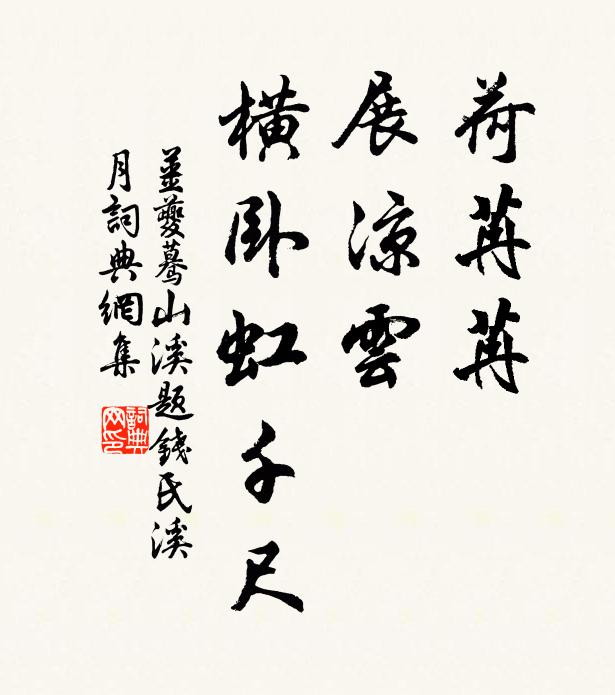 荷苒苒
展涼雲
橫卧虹千尺
姜夔驀山溪題錢氏溪
月詞典網集
詞典網印